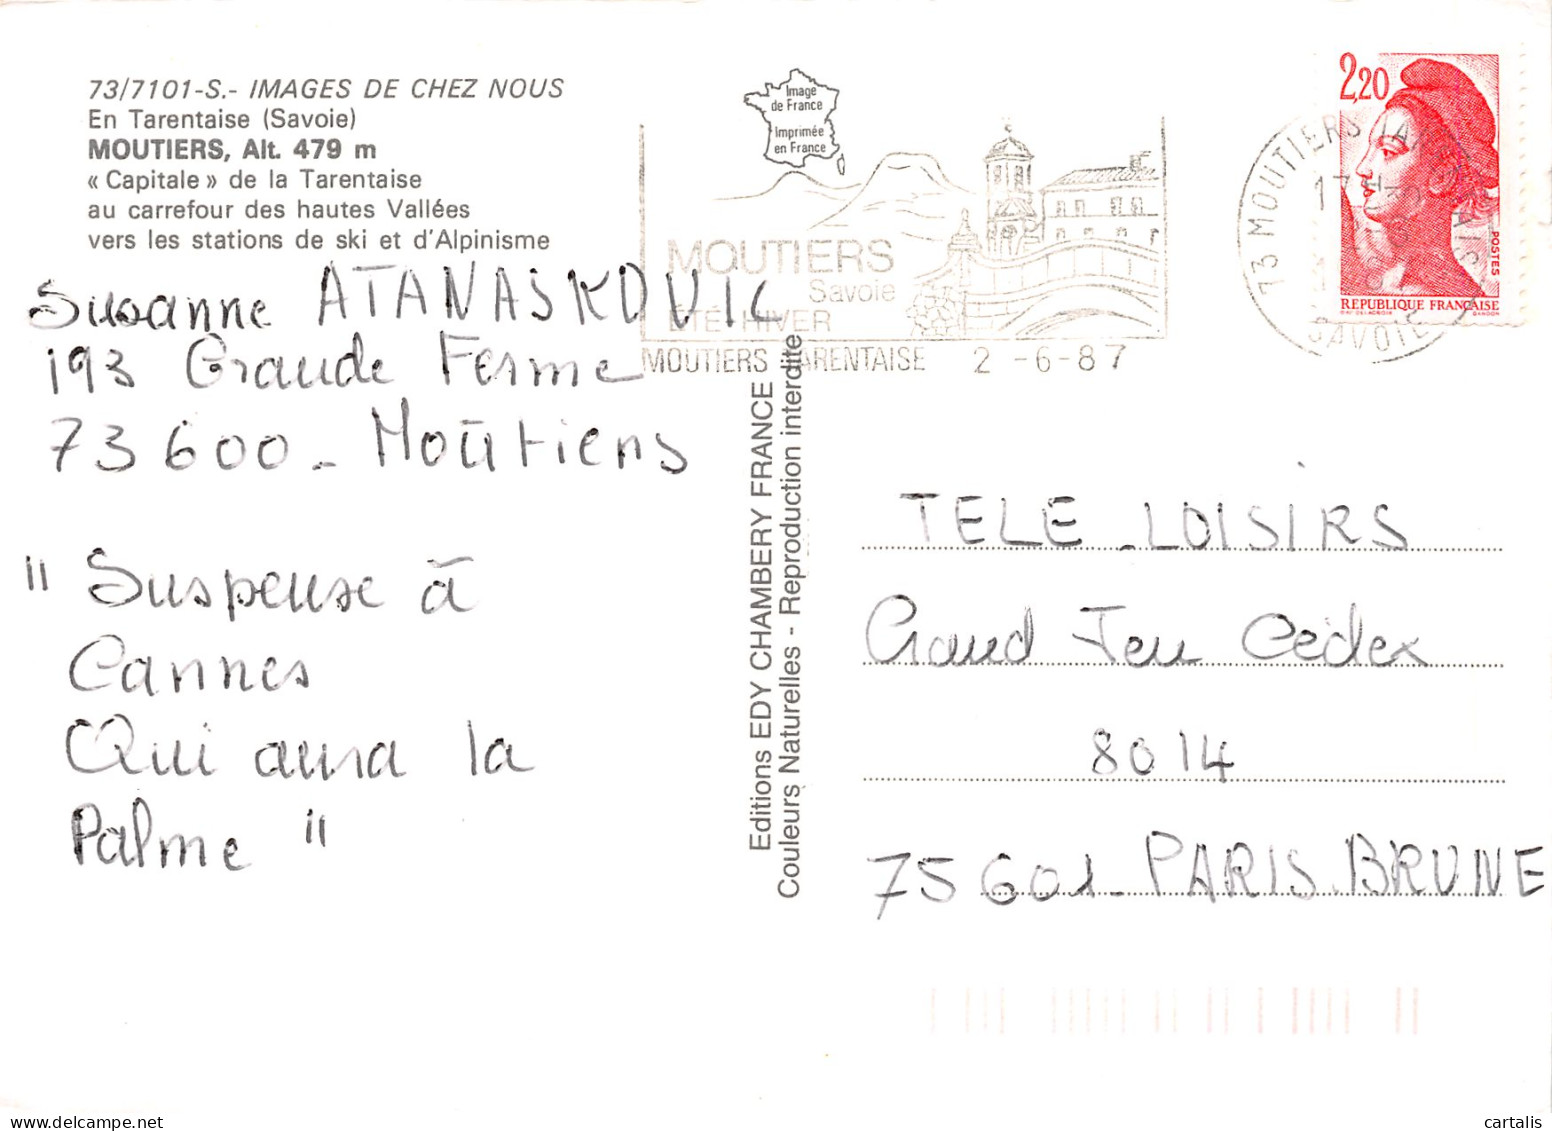 73/7101-S.- IMAGES DE CHEZ NOUS
En Tarentaise (Savoie)
MOUTIERS, Alt. 479 m
« Capitale » de la Tarentaise
au carrefour des hautes Vallées
vers les stations de ski et d'Alpinisme
Susanne ATANASKOVIC
193 Grande Ferme
73600 - Moûtiers
" Suspense à
Cannes
Qui aura la
Palme "
Image
de France
Imprimée
en France
MOUTIERS
Savoie
ETE HIVER
MOUTIERS TARENTAISE 2 -6-87
Editions EDY CHAMBERY FRANCE
Couleurs Naturelles - Reproduction interdite
2,20
POSTES
REPUBLIQUE FRANÇAISE
GANDON
73 MOUTIERS TARENTAISE
SAVOIE
TELE - LOISIRS
Grand Jeu Cédex
8014
75601 - PARIS. BRUNE
cartalis